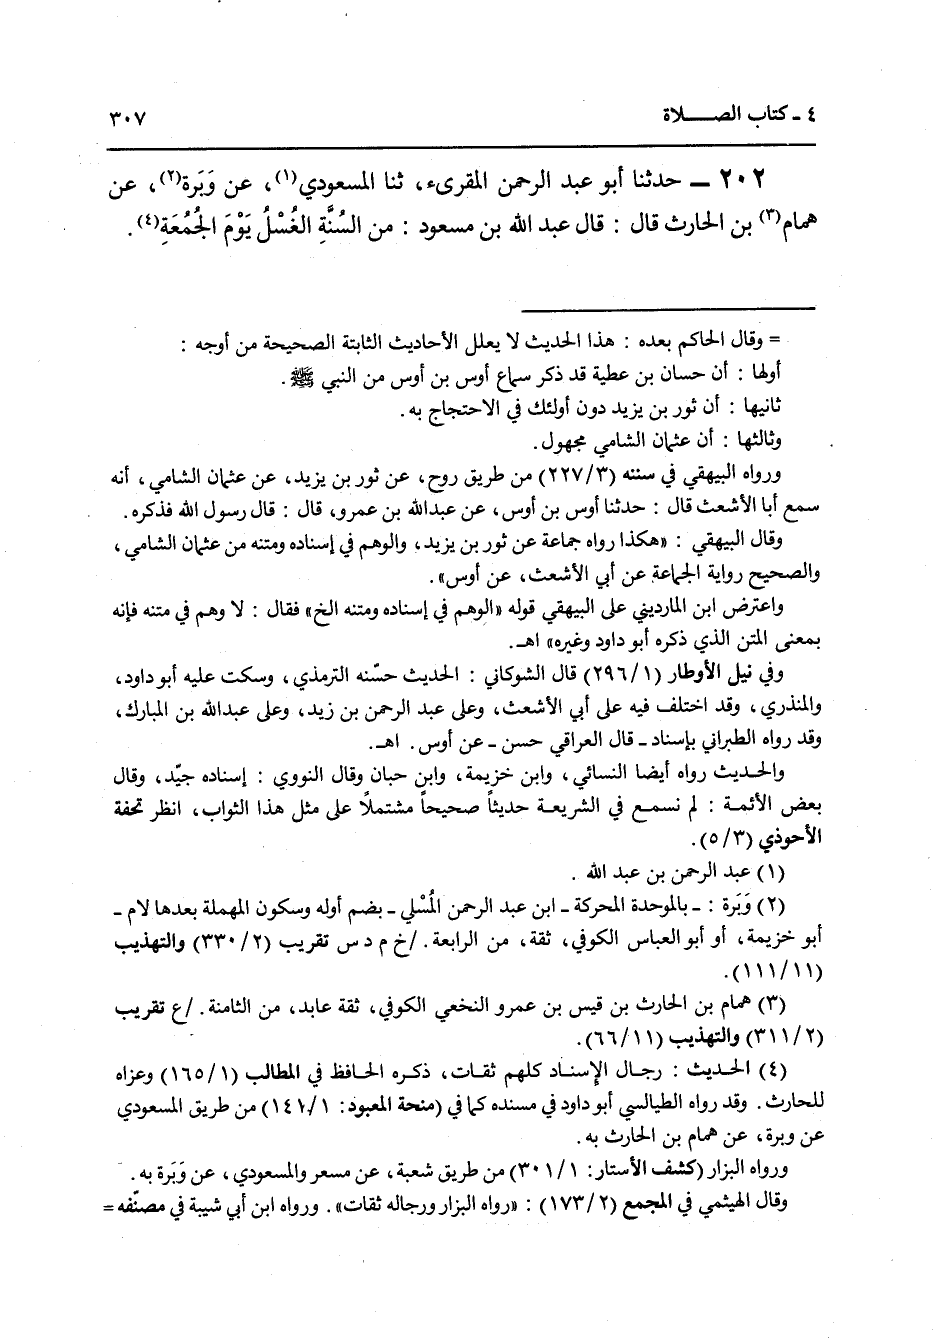 ٤ ـ كتاب الصـــلاة ٣٠٧
٢٠٢ ــ حدثنا أبو عبد الرحمن المقرىء، ثنا المسعودي(١)، عن وَبَرة(٢)، عن
همام(٣) بن الحارث قال : قال عبد الله بن مسعود : من السُنَّةِ الغُسْلُ يَوْمَ الجُمُعَةِ(٤).
= وقال الحاكم بعده : هذا الحديث لا يعلل الأحاديث الثابتة الصحيحة من أوجه :
أولها : أن حسان بن عطية قد ذكر سماع أوس بن أوس من النبي ﷺ.
ثانيها : أن ثور بن يزيد دون أولئك في الاحتجاج به.
وثالثها : أن عثمان الشامي مجهول.
ورواه البيهقي في سننه (٢٢٧/٣) من طريق روح، عن ثور بن يزيد، عن عثمان الشامي، أنه
سمع أبا الأشعث قال : حدثنا أوس بن أوس، عن عبدالله بن عمرو، قال : قال رسول الله فذكره.
وقال البيهقي : «هكذا رواه جماعة عن ثور بن يزيد، والوهم في إسناده ومتنه من عثمان الشامي،
والصحيح رواية الجماعة عن أبي الأشعث، عن أوس».
واعترض ابن المارديني على البيهقي قوله «الوهم في إسناده ومتنه الخ» فقال : لا وهم في متنه فإنه
بمعنى المتن الذي ذكره أبو داود وغيره» اهـ.
وفي نيل الأوطار (٢٩٦/١) قال الشوكاني : الحديث حسّنه الترمذي، وسكت عليه أبو داود،
والمنذري، وقد اختلف فيه على أبي الأشعث، وعلى عبد الرحمن بن زيد، وعلى عبدالله بن المبارك،
وقد رواه الطبراني بإسناد ـ قال العراقي حسن ـ عن أوس. اهـ.
والحديث رواه أيضا النسائي، وابن خزيمة، وابن حبان وقال النووي : إسناده جيّد، وقال
بعض الأئمة : لم نسمع في الشريعة حديثاً صحيحاً مشتملاً على مثل هذا الثواب، انظر تحفة
الأحوذي (٥/٣).
(١) عبد الرحمن بن عبد الله .
(٢) وَبَرة : ـ بالموحدة المحركة ـ ابن عبد الرحمن المُسْلي ـ بضم أوله وسكون المهملة بعدها لام ـ
أبو خزيمة، أو أبو العباس الكوفي، ثقة، من الرابعة. /خ م د س تقريب (٣٣٠/٢) والتهذيب
(١١١/١١).
(٣) همام بن الحارث بن قيس بن عمرو النخعي الكوفي، ثقة عابد، من الثامنة. /ع تقريب
(٣١١/٢) والتهذيب (٦٦/١١).
(٤) الحديث : رجال الإسناد كلهم ثقات، ذكره الحافظ في المطالب (١٦٥/١) وعزاه
للحارث. وقد رواه الطيالسي أبو داود في مسنده كما في (منحة المعبود: ١٤١/١) من طريق المسعودي
عن وبرة، عن همام بن الحارث به.
ورواه البزار (كشف الأستار: ٣٠١/١) من طريق شعبة، عن مسعر والمسعودي، عن وَبَرة به.
وقال الهيثمي في المجمع (١٧٣/٢) : «رواه البزار ورجاله ثقات». ورواه ابن أبي شيبة في مصنّفه =